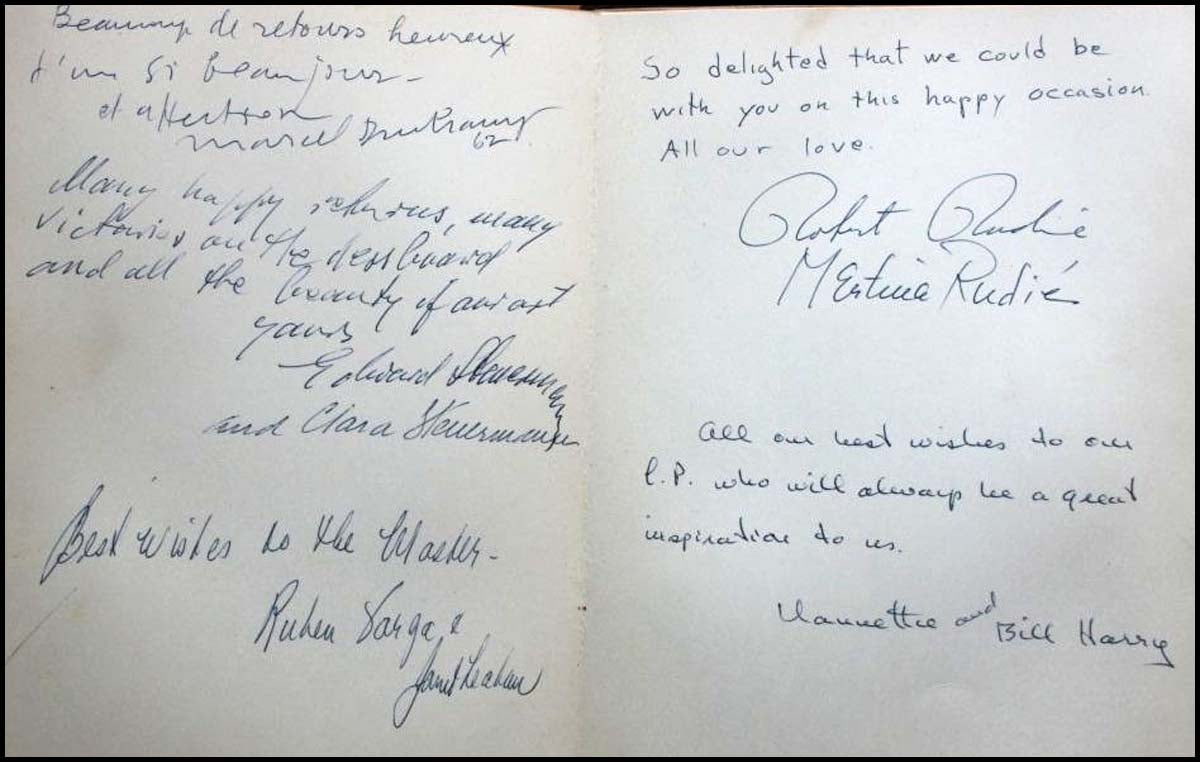 Beaucoup de retours heureux
d'un si beau jour –
et affection
Marcel
62
Many happy returns, many
victories on the dessboard
and all the beauty of our art
yours
Edward Steuermann
and Clara Steuermann
Best Wishes to the Master –
Ruben Varga &
Janet
So delighted that we could be
with you on this happy occasion.
All our love.
Robert Rudié
Mertina Rudié
All our best wishes to our
L.P. who will always be a great
inspiration to us.
and
Bill Harry